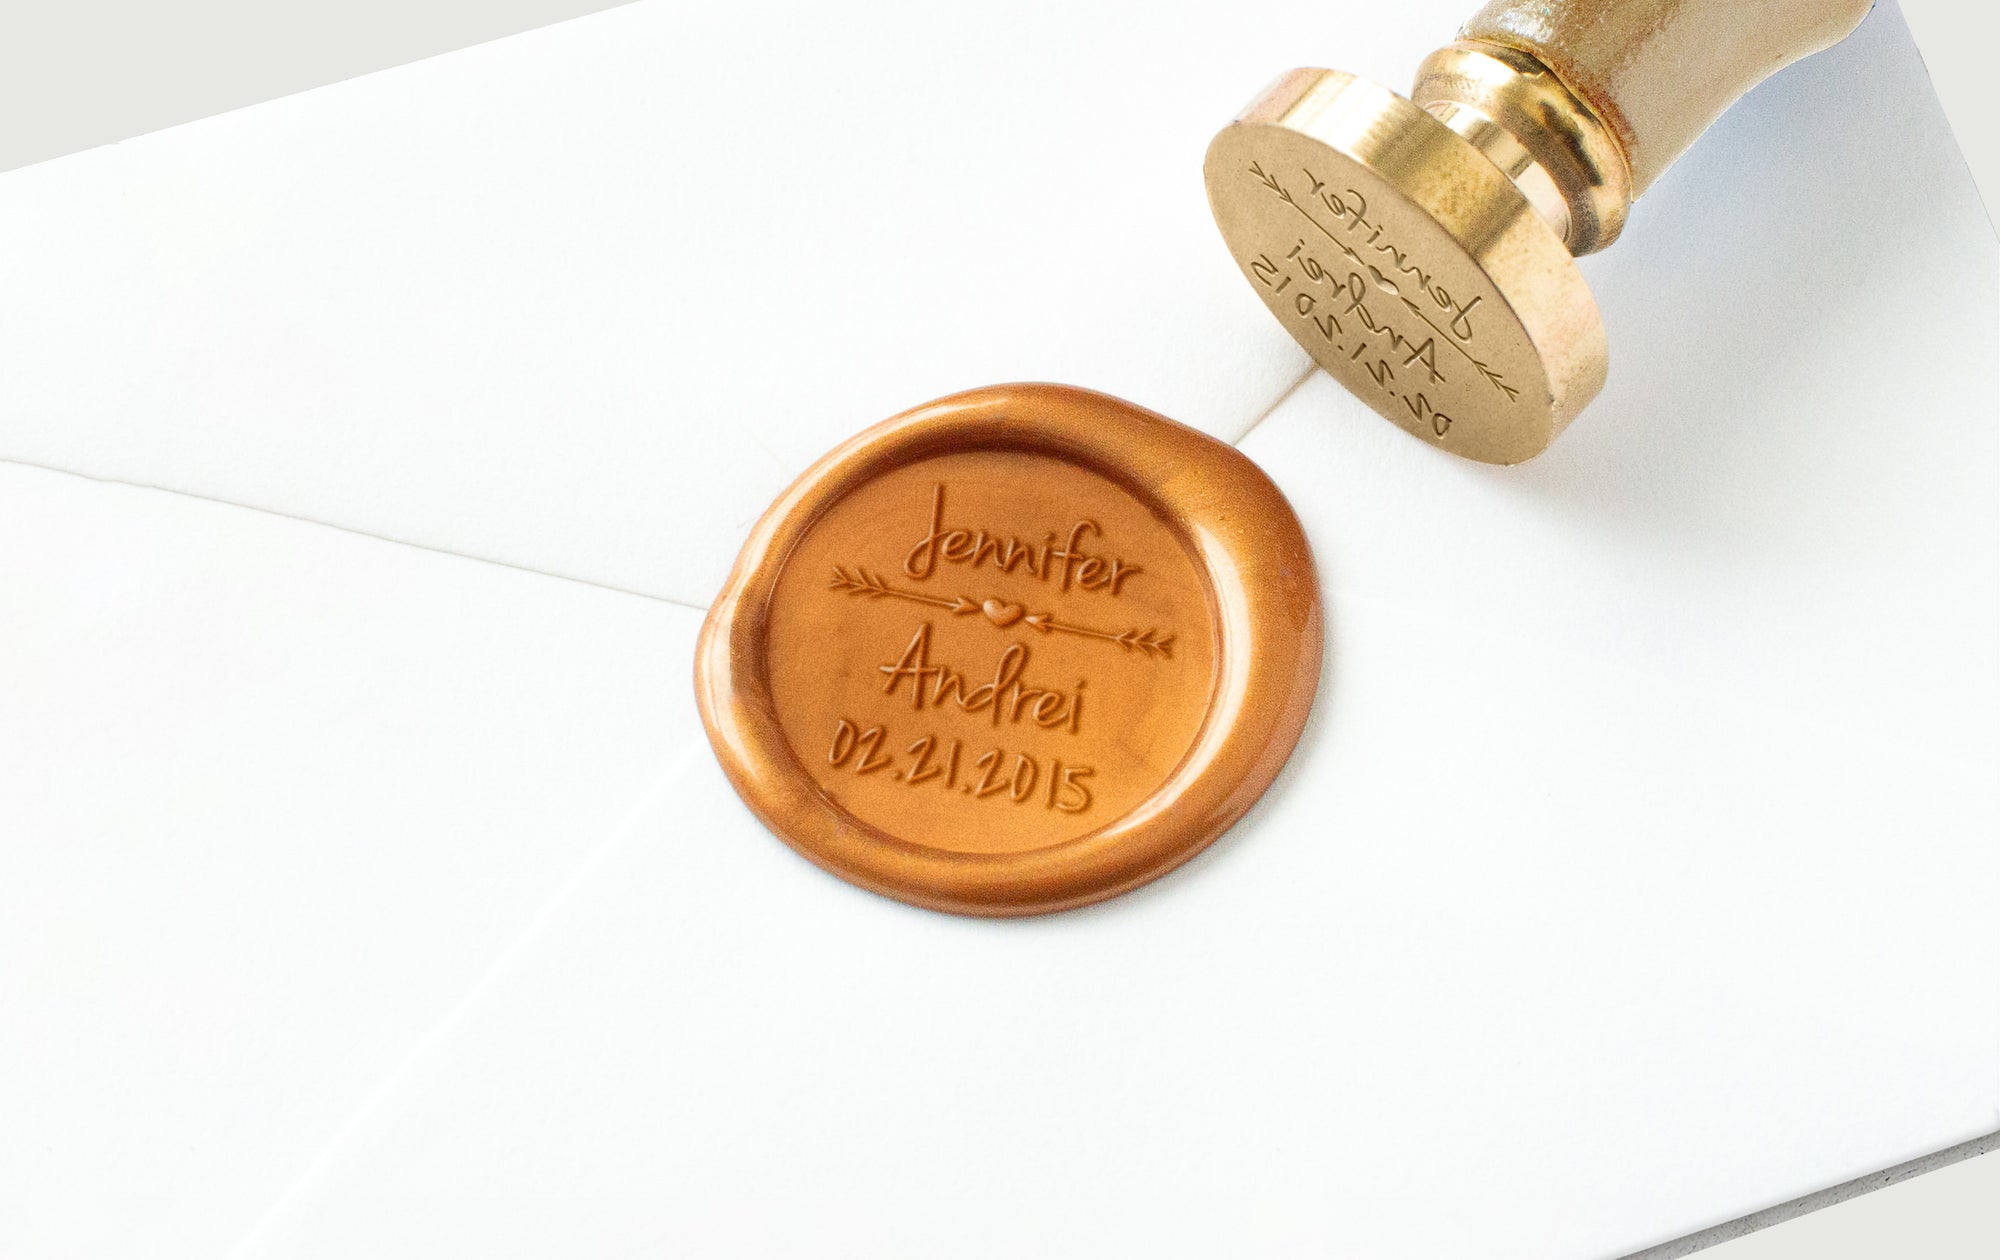 Jennifer
Andrei
02.21.2015
Jennifer
Andrei
02.21.2015